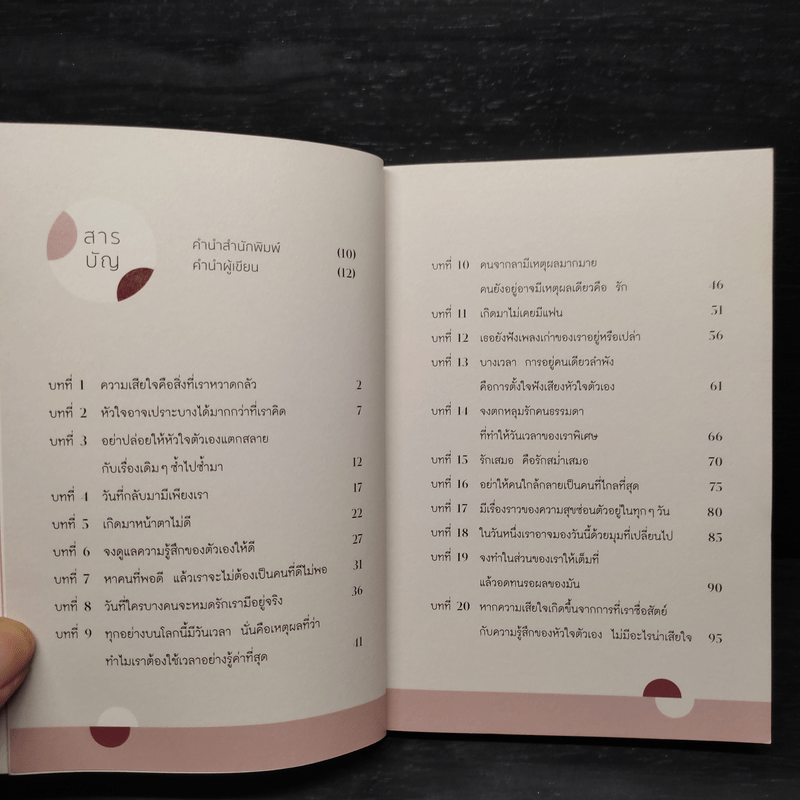 สาร
บัญ
คำนำสำนักพิมพ์ (10)
คำนำผู้เขียน (12)
บทที่ 1 ความเสียใจคือสิ่งที่เราหวาดกลัว 2
บทที่ 2 หัวใจอาจเปราะบางได้มากกว่าที่เราคิด 7
บทที่ 3 อย่าปล่อยให้หัวใจตัวเองแตกสลาย
กับเรื่องเดิมๆ ซ้ำไปซ้ำมา 12
บทที่ 4 วันที่กลับมามีเพียงเรา 17
บทที่ 5 เกิดมาหน้าตาไม่ดี 22
บทที่ 6 จงดูแลความรู้สึกของตัวเองให้ดี 27
บทที่ 7 หาคนที่พอดี แล้วเราจะไม่ต้องเป็นคนที่ดีไม่พอ 31
บทที่ 8 วันที่ใครบางคนจะหมดรักเรามีอยู่จริง 36
บทที่ 9 ทุกอย่างบนโลกนี้มีวันเวลา นั่นคือเหตุผลที่ว่า
ทำไมเราต้องใช้เวลาอย่างรู้ค่าที่สุด 41
บทที่ 10 คนจากลามีเหตุผลมากมาย
คนยังอยู่อาจมีเหตุผลเดียวคือ รัก 46
บทที่ 11 เกิดมาไม่เคยมีแฟน 51
บทที่ 12 เธอยังฟังเพลงเก่าของเราอยู่หรือเปล่า 56
บทที่ 13 บางเวลา การอยู่คนเดียวลำพัง
คือการตั้งใจฟังเสียงหัวใจตัวเอง 61
บทที่ 14 จงตกหลุมรักคนธรรมดา
ที่ทำให้วันเวลาของเราพิเศษ 66
บทที่ 15 รักเสมอ คือรักสม่ำเสมอ 70
บทที่ 16 อย่าให้คนใกล้กลายเป็นคนที่ไกลที่สุด 75
บทที่ 17 มีเรื่องราวของความสุขซ่อนตัวอยู่ในทุกๆ วัน 80
บทที่ 18 ในวันหนึ่งเราอาจมองวันนี้ด้วยมุมที่เปลี่ยนไป 85
บทที่ 19 จงทำในส่วนของเราให้เต็มที่
แล้วอดทนรอผลของมัน 90
บทที่ 20 หากความเสียใจเกิดขึ้นจากการที่เราซื่อสัตย์
กับความรู้สึกของหัวใจตัวเอง ไม่มีอะไรน่าเสียใจ 95